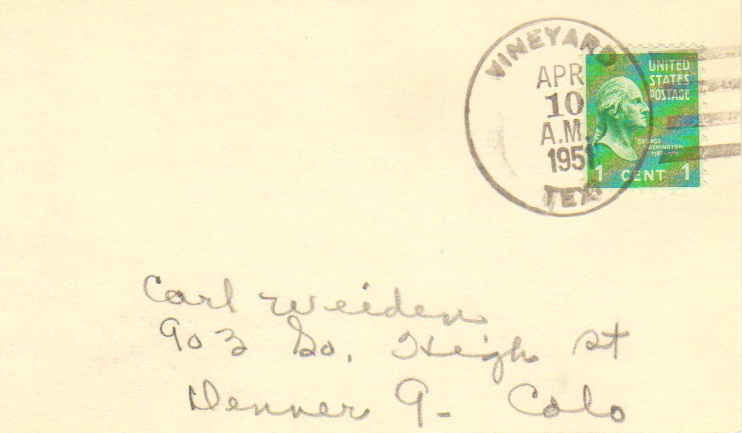 VINEYARD
APR
10
A.M.
1951
TEX.
UNITED
STATES
POSTAGE
GEORGE
WASHINGTON
1 CENT 1
Carl Weiden
903 So. High St
Denver 9- Colo